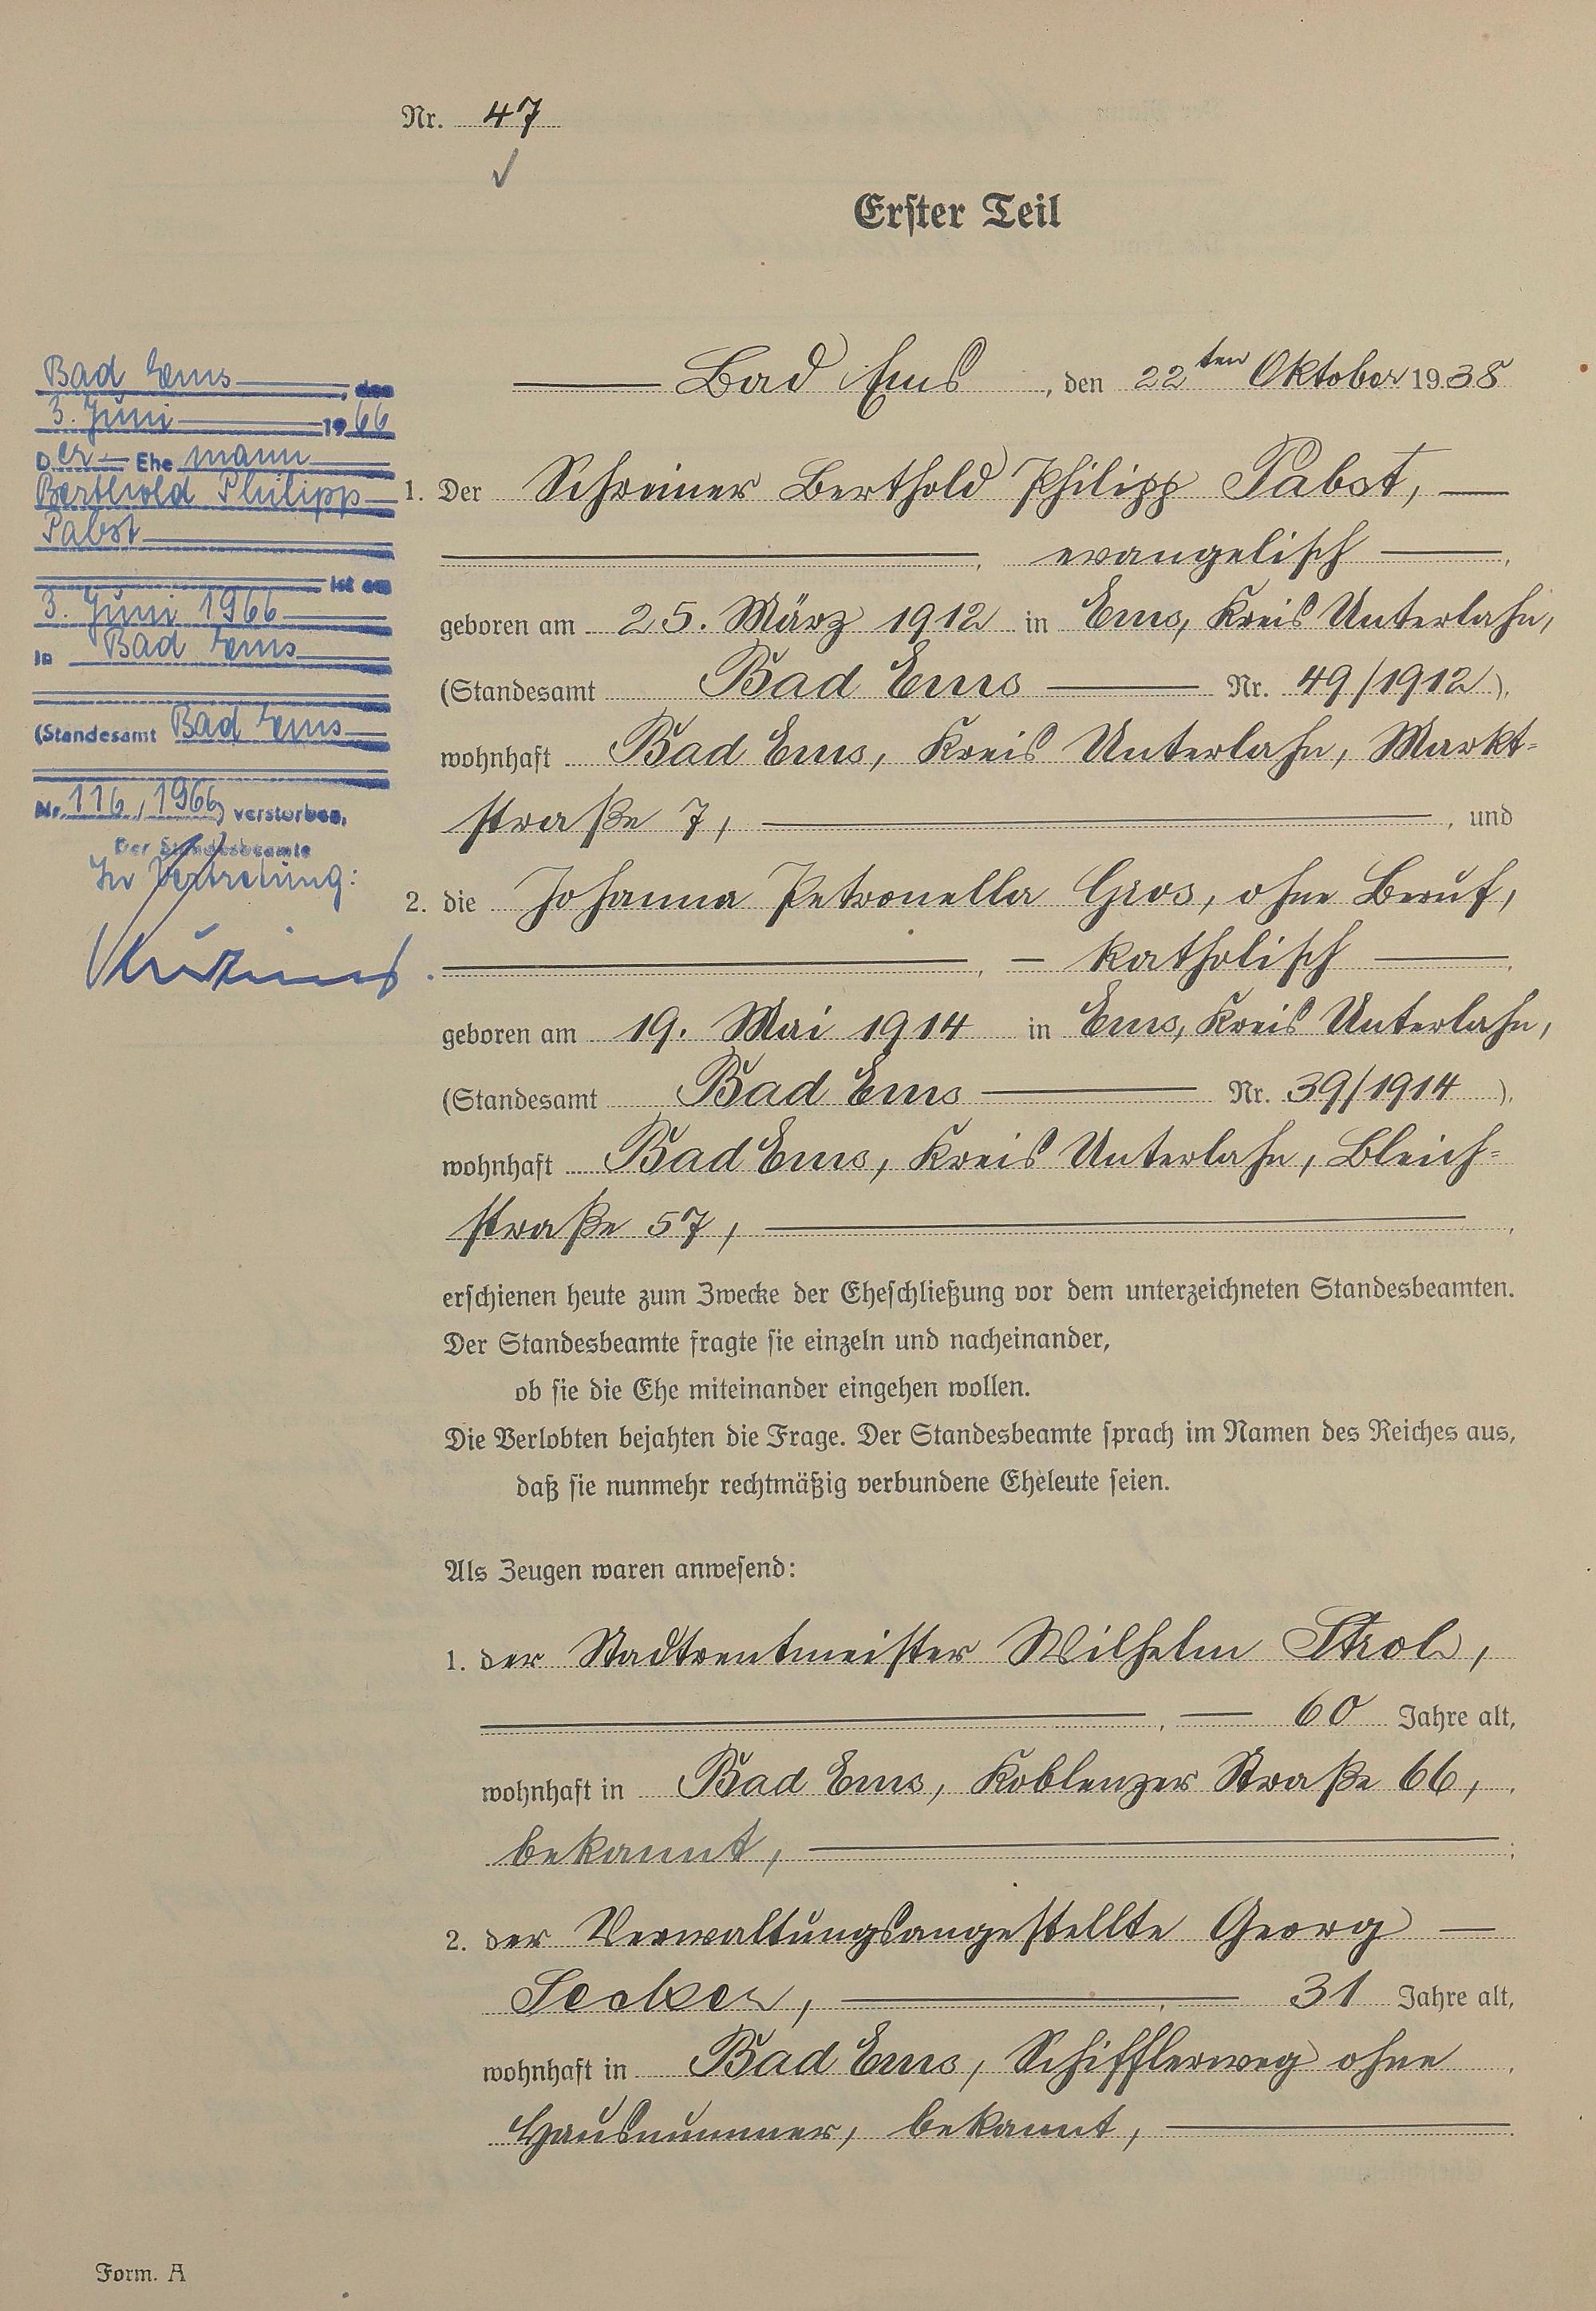 Nr. 47
Erster Teil
Bad Ems, den 22ten Oktober 1938
1. Der Schreiner Berthold Philipp Pabst,
, evangelisch,
geboren am 25. März 1912 in Ems, Kreis Unterlahn,
(Standesamt Bad Ems Nr. 49/1912),
wohnhaft Bad Ems, Kreis Unterlahn, Markt-
straße 7, , und
2. die Johanna Petronella Gros, ohne Beruf,
, katholisch,
geboren am 19. Mai 1914 in Ems, Kreis Unterlahn,
(Standesamt Bad Ems Nr. 39/1914),
wohnhaft Bad Ems, Kreis Unterlahn, Bleich-
straße 57, ,
erschienen heute zum Zwecke der Eheschließung vor dem unterzeichneten Standesbeamten.
Der Standesbeamte fragte sie einzeln und nacheinander,
ob sie die Ehe miteinander eingehen wollen.
Die Verlobten bejahten die Frage. Der Standesbeamte sprach im Namen des Reiches aus,
daß sie nunmehr rechtmäßig verbundene Eheleute seien.
Als Zeugen waren anwesend:
1. der Stadtrentmeister Wilhelm
, 60 Jahre alt,
wohnhaft in Bad Ems, Koblenzer Straße 66, ,
bekannt, ;
2. der Verwaltungsangestellte Georg
, 31 Jahre alt,
wohnhaft in Bad Ems, Schifflerweg ohne ,
Hausnummer, bekannt, .
Bad Ems, den
3. Juni 1966
Der Ehemann
Berthold Philipp
Pabst
ist am
3. Juni 1966
in Bad Ems
(Standesamt Bad Ems
Nr. 116/1966) verstorben.
Der Standesbeamte
In Vertretung:
Form. A